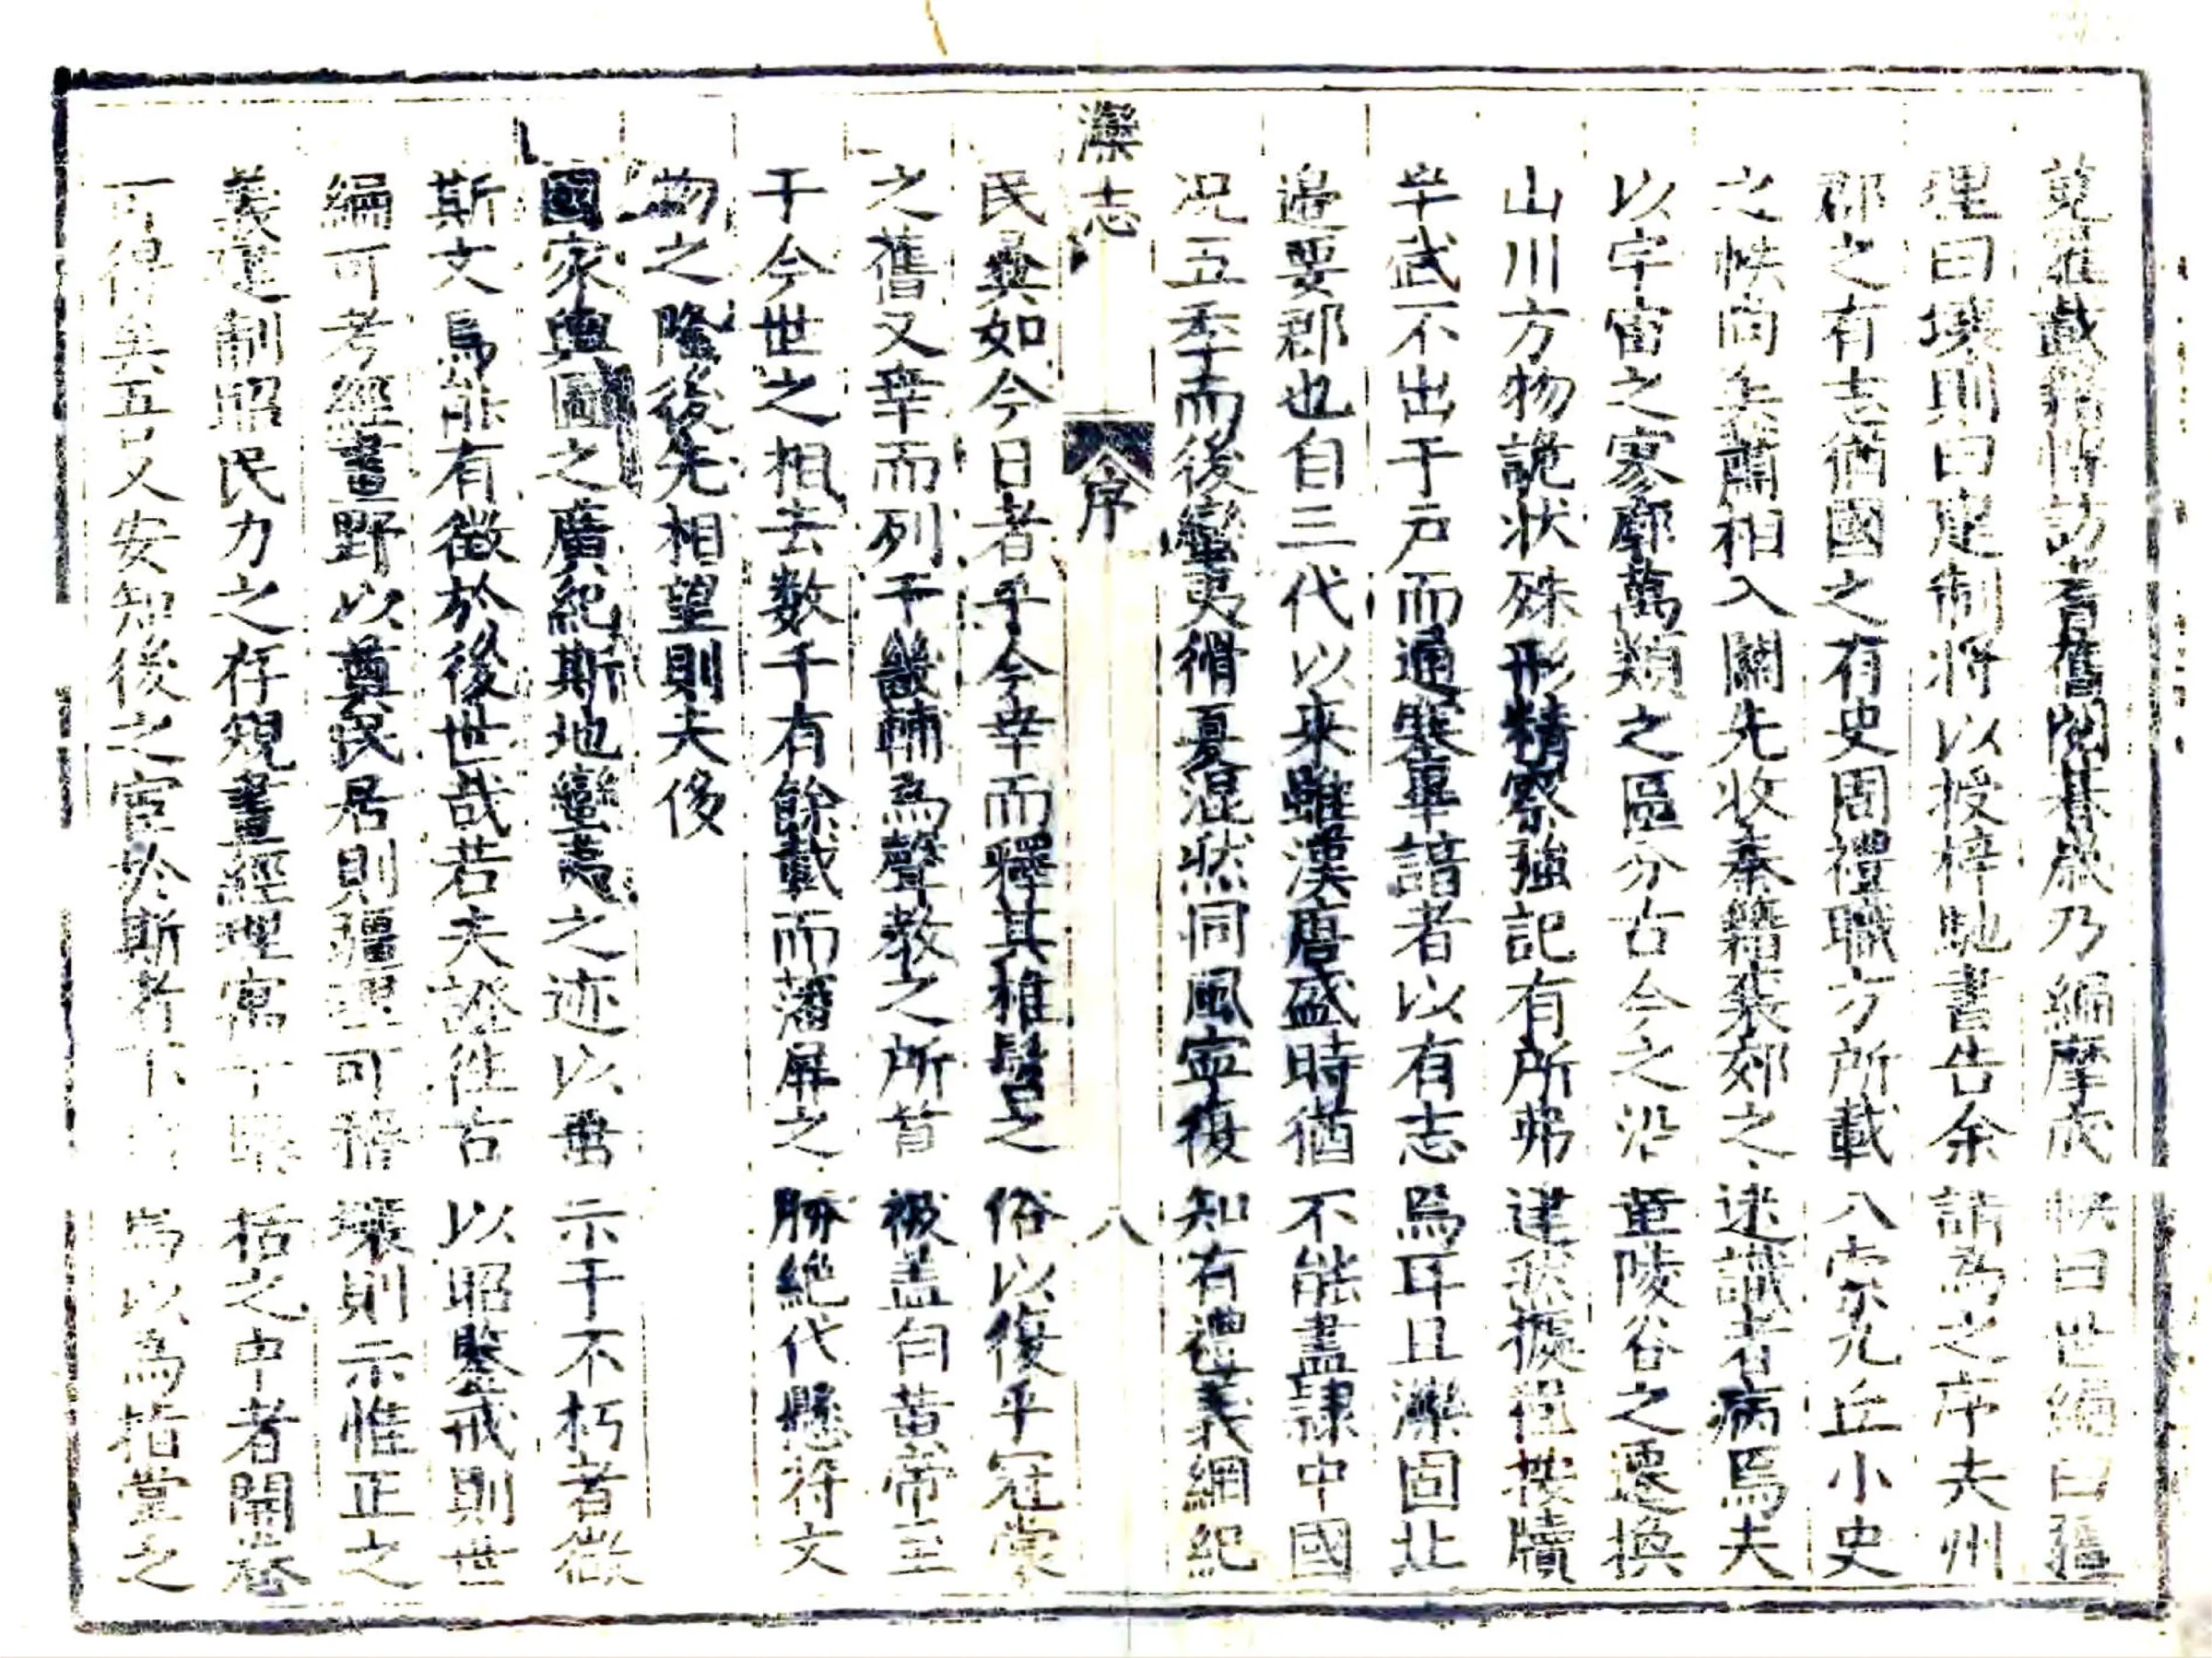 蒐羅載籍博訪耆舊閱朞歲乃編摩成帙曰世編曰疆
理曰壤則曰建制將以授梓馳書告余請為之序夫州
郡之有志猶國之有史周禮職方所載八索九丘小史
之帙尚矣蕭相入關先收秦籍裴郊之述識者病焉夫
以宇宙之寥廓萬類之區分古今之沿革陵谷之遷換
山川方物詭狀殊形精察強記有所弗逮然據徃按牘
半武不出于戶而通塞畢諳者以有志焉耳且灤固北
邉要郡也自三代以来雖漢唐盛時猶不能盡隷中國
况五季而後蠻夷猾夏混然同風寧復知有禮義綱紀
灤志 序 八
民彝如今日者乎今幸而釋其椎髻之俗以復乎冠裳
之舊又幸而列于畿輔為聲教之所首被盖自黄帝至
于今世之相去数千有餘載而藩屏之勝絶代懸符文
物之隆後先相望則夫侈
國家輿圖之廣紀斯地蠻夷之迹以垂示于不朽者微
斯文烏能有徵於後世哉若夫證徃古以昭鑒戒則世
編可考經畫野以奠民居則疆理可稽壤則示惟正之
義建制昭民力之存規畫經理寓于 括之中者開卷
可得矣吾又安知後之宦於斯者不 為以為指掌之